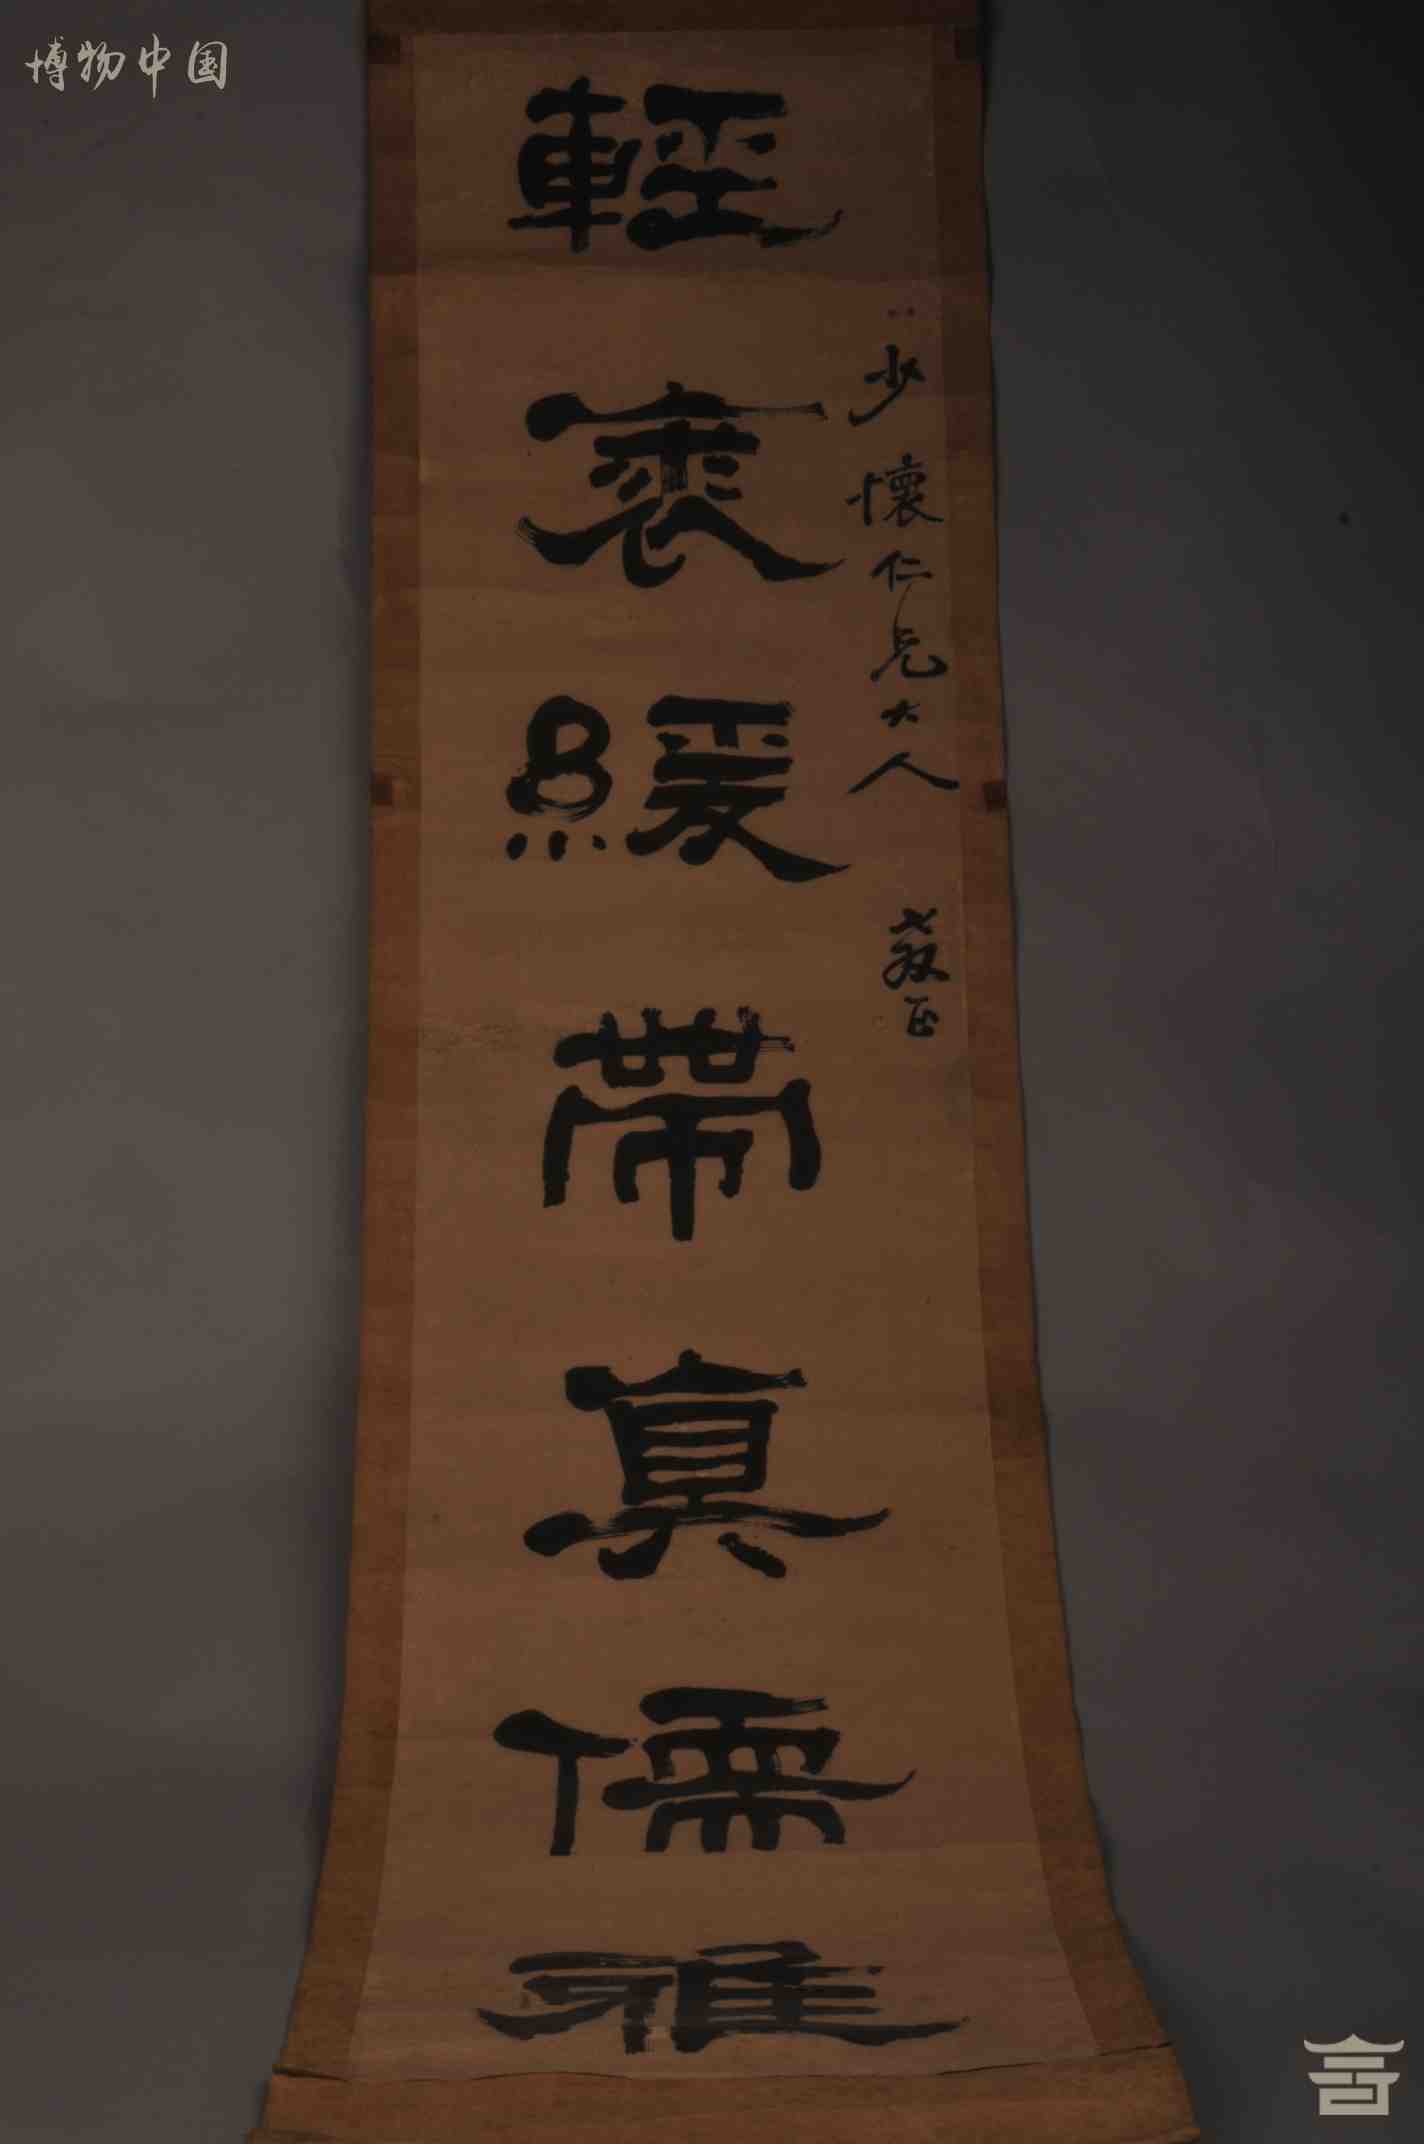 博物中国
少懷仁兄大人教正
輕裘緩帶真儒雅